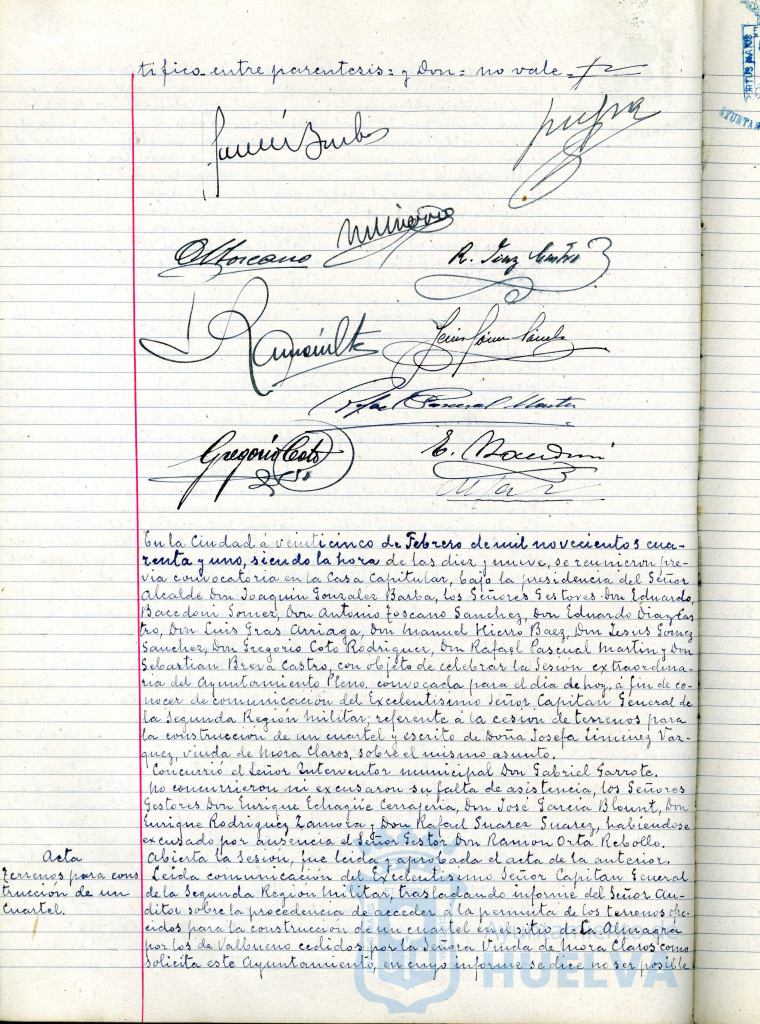 tifico_entre parentesis= y Don= no vale=
Gregorio Coto
En la Ciudad á veinticinco de Febrero de mil novecientos cua-
renta y uno, siendo la hora de las diez y nueve, se reunieron pre-
via convocatoria en la Casa Capitular, bajo la presidencia del Señor
Alcalde Don Joaquin Gonzalez Barba, los Señores Gestores Don Eduardo
Bacedoni Gomez, Don Antonio Toscano Sanchez, Don Eduardo Diaz Cas-
tro, Don Luis Gras Arriaga, Don Manuel Hierro Baez, Don Jesus Gomez
Sanchez, Don Gregorio Coto Rodriguez, Don Rafael Pascual Martin y Don
Sebastian Breva Castro, con objeto de celebrar la Sesion extraordina-
ria del Ayuntamiento Pleno, convocada para el dia de hoy, á fin de co-
nocer de comunicación del Excelentisimo Señor Capitan General de
la Segunda Región Militar, referente á la cesion de terrenos para
la construcción de un cuartel y escrito de Doña Josefa Jimenez Vaz-
quez, viuda de Mora Claros, sobre el mismo asunto.
Concurrió el Señor Interventor municipal Don Gabriel Garrote.
No concurrieron ni excusaron su falta de asistencia, los Señores
Gestores Don Enrique Echagüe Cerrajeria, Don José Garcia Blount, Don
Enrique Rodriguez Zamora y Don Rafael Suarez Suarez, habiendose
excusado por ausencia el Señor Gestor Don Ramon Orta Rebollo.
Abierta la Sesion, fue leida y aprobada el acta de la anterior.
Acta
terrenos para cons
trucción de un
Cuartel.
Leida comunicación del Excelentisimo Señor Capitan General
de la Segunda Región Militar, trasladando informe del Señor Au-
ditor sobre la procedencia de acceder á la permuta de los terrenos ofre-
cidos para la construcción de un cuartel en el sitio de La Almagra
por los de Valbueno cedidos por la Señora Viuda de Mora Claros como
solicita este Ayuntamiento, en cuyo informe se dice no ser posible
HUELVA